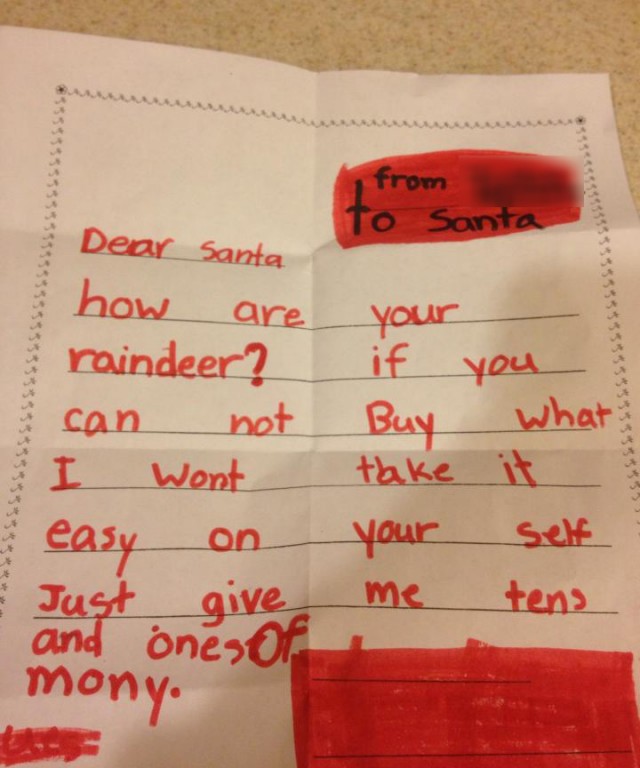 from
to Santa
Dear Santa
how are your
raindeer? if you
can not Buy what
I wont take it
easy on your self
Just give me tens
and ones Of
mony.